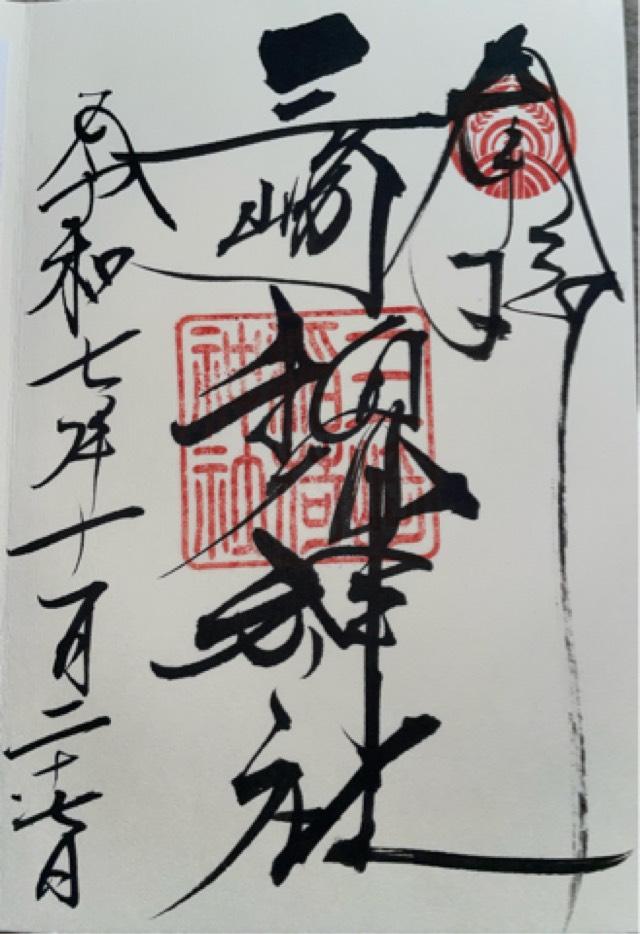 三崎稲荷神社
三崎稲荷神社
令和七年十月二十七日